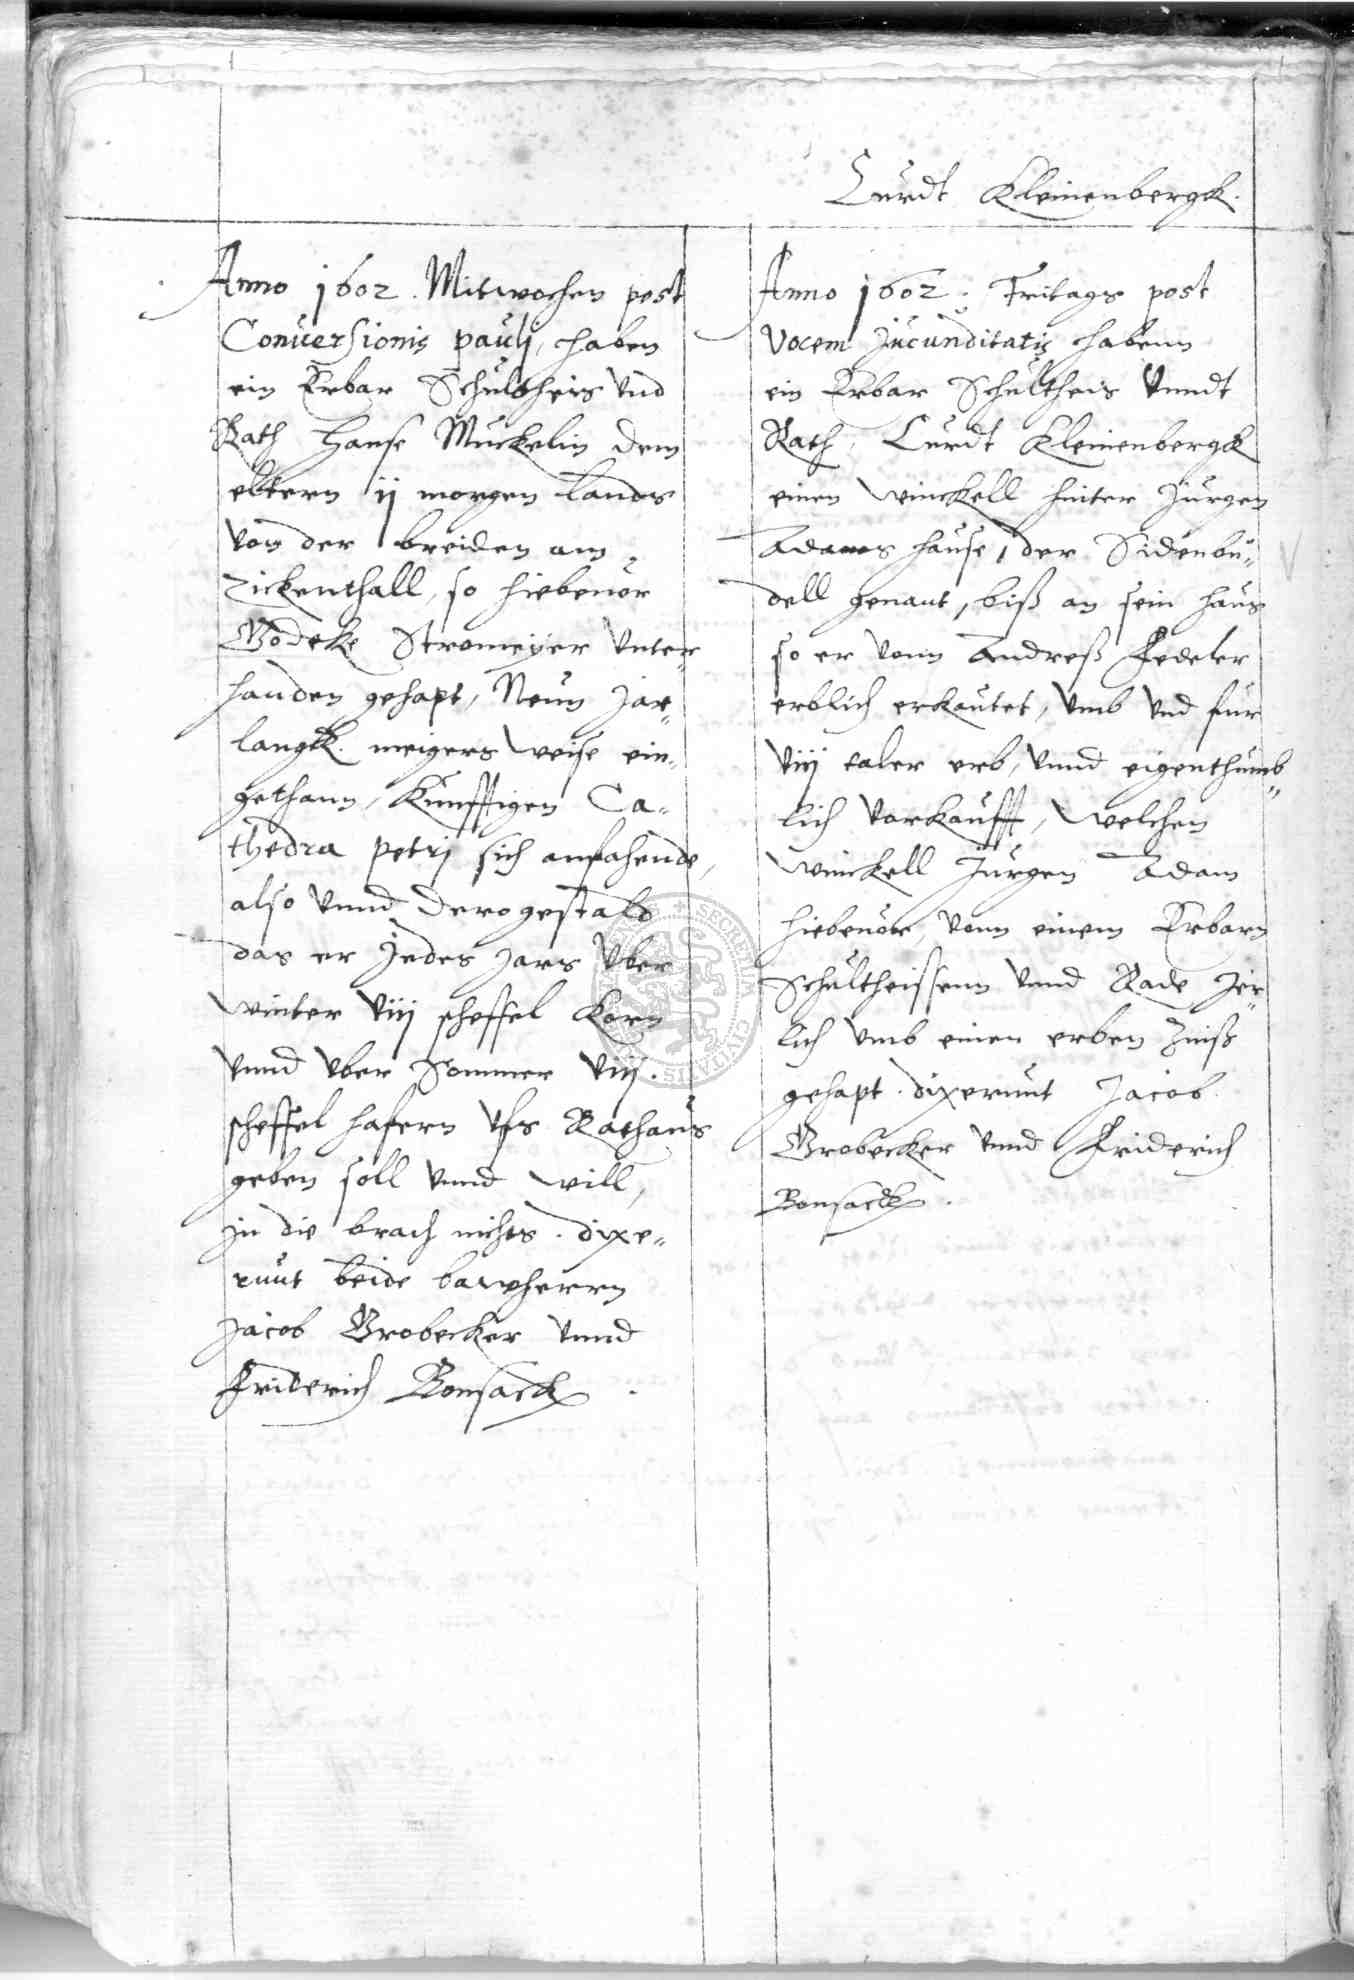 Curdt Kleinenbergk.
Anno 1602. Mitwochen post
Conuersionis pauli, haben
ein Erbar Schultheis vnd
Rath Hanse Muckelin dem
eltern ij morgen Lands
von der breiden am
Zickenthall, so hiebeuor
Godeke Stromeyer vnter„
handen gehapt, Neun Jar„
langk. meigers weise ein„
gethann, Kunfftigen Ca„
thedra petri sich anfahende,
also vnnd dero gestald
das er Jedes Jars vber
winter viij scheffel Korn
vnnd vber Sommer viij.
scheffel hafern vfs Rathaus
geben soll vnnd will,
in die brach nichts. dixe„
runt beide bawherrn
Jacob Grobecker vnnd
Friderich Bonsack.
Anno 1602. Fritags post
Vocem Jucunditatis habenn
ein Erbar Schultheis vnndt
Rath, Curdt Kleinenbergk
einen winckell hinter Jurgen
Adams hause, der Sidenbu„
dell genant, biß an sein haus
so er vonn Andreß Fedeler
erblich erkautet, vmb vnd fur
viij taler erb, vnnd eigenthumb„
lich vorkaufft, welchen
winckell Jurgen Adam
hiebeuor, vonn einem Erbarn
Schultheissenn vnnd Rade Jer„
lich vmb einen erben Zinß
gehapt. dixerunt Jacob
Grobecker vnnd Friderich
Bonsack.
SECRETUM CIVITATIS